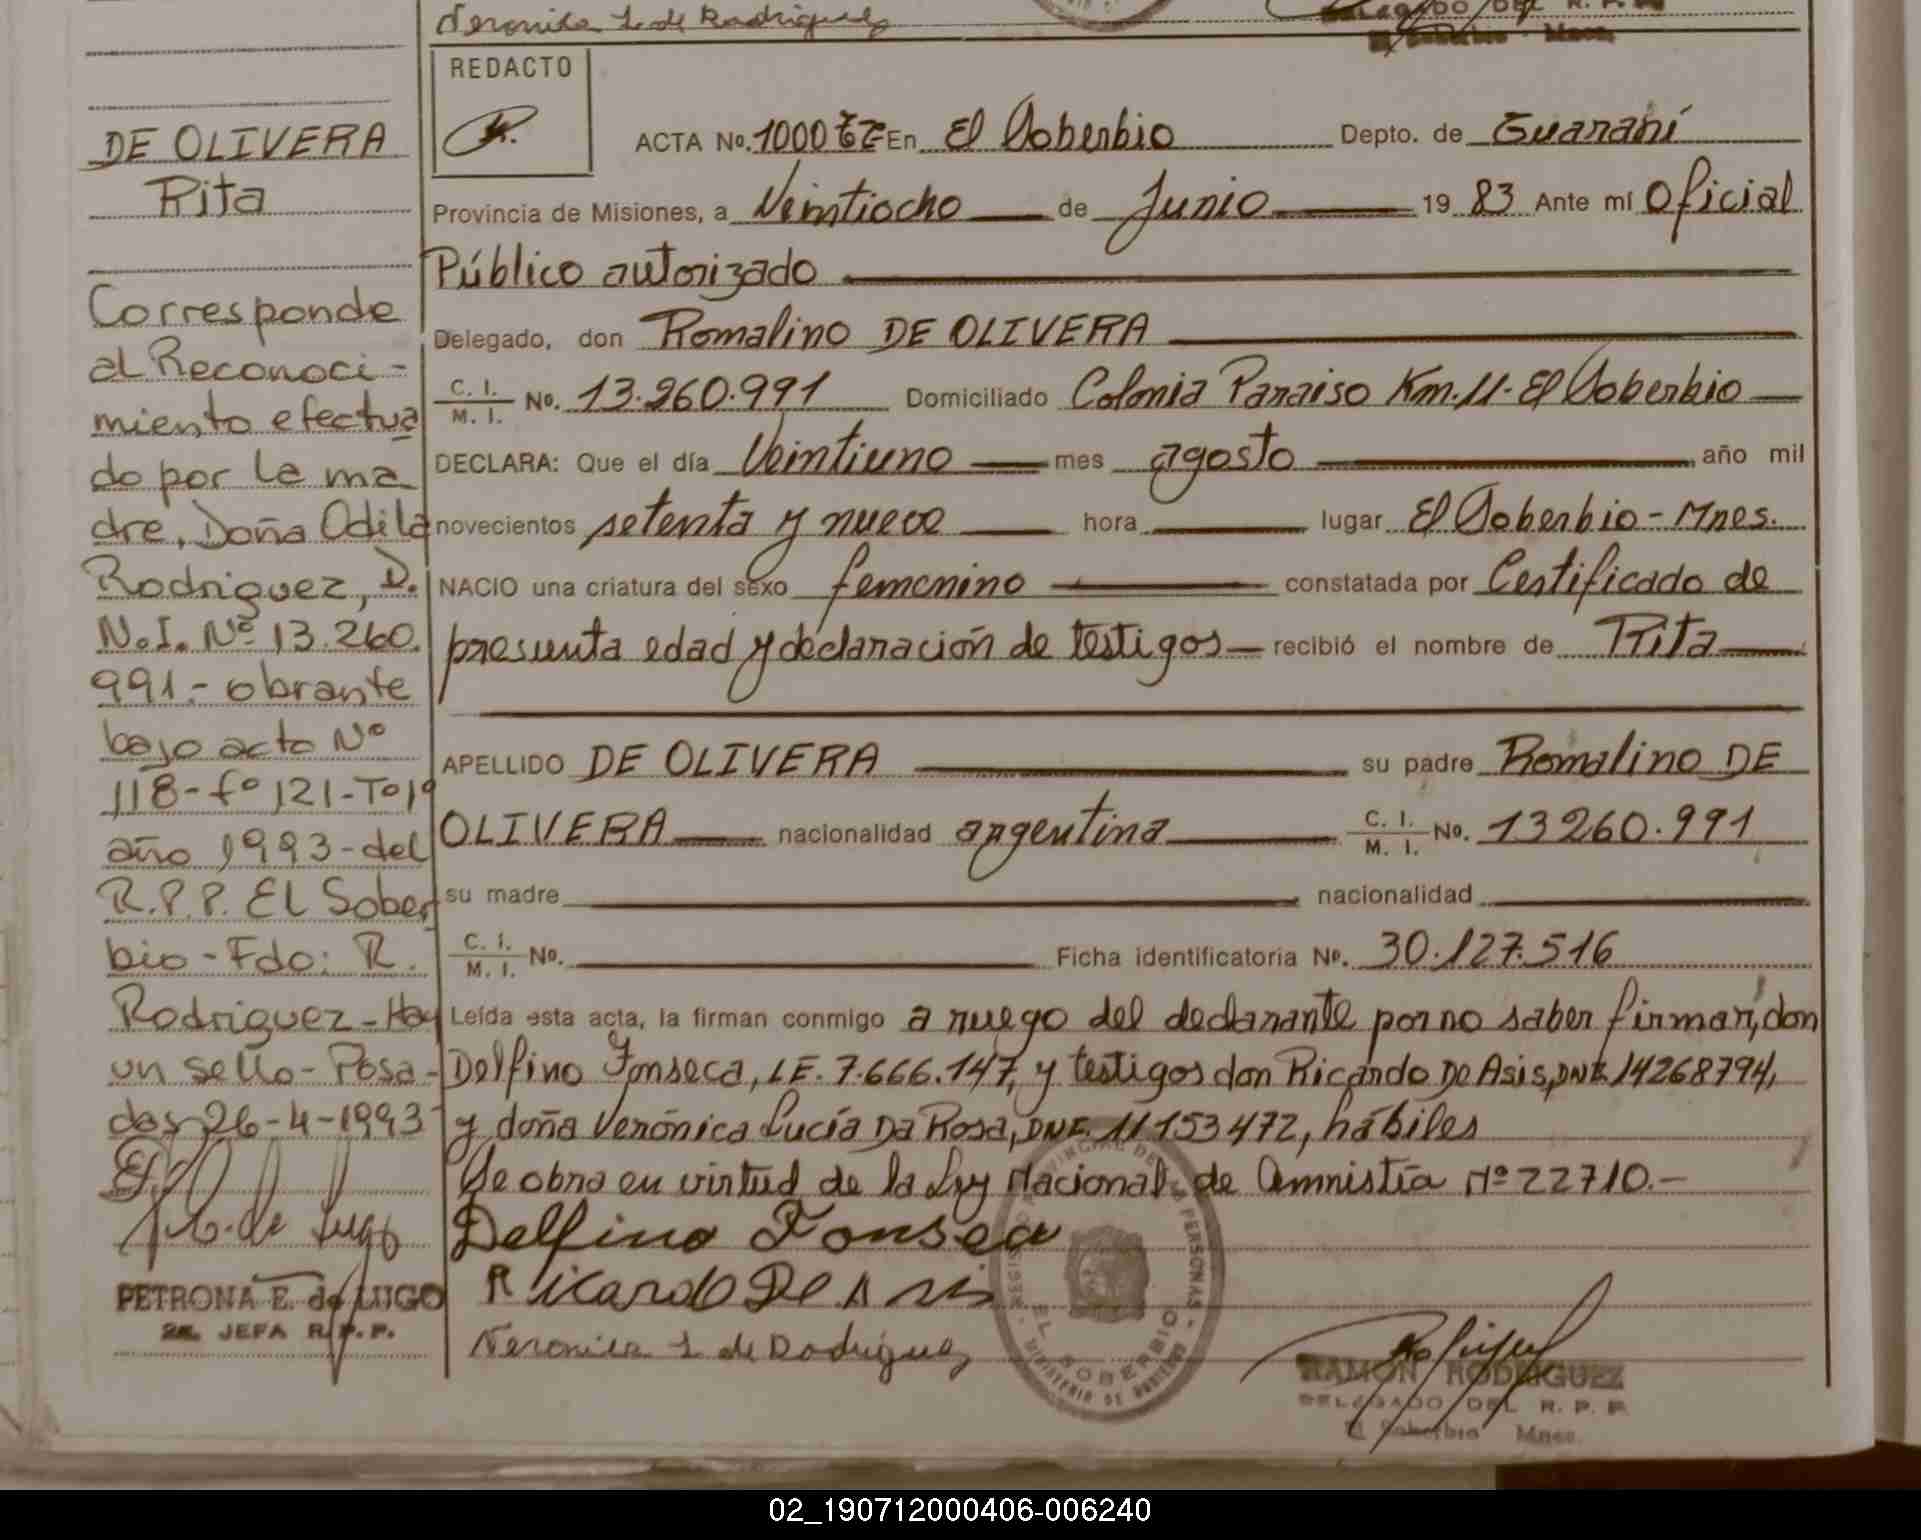 Veronica L. de Rodriguez
DELEGADO DEL R. P. P.
El Soberbio - Mnes.
DE OLIVERA
Rita
Corresponde
al Reconoci-
miento efectua
do por la ma
dre, Doña Odila
Rodriguez, D.
N.I. Nº 13.260.
991.- obrante
bajo acta Nº
118-fº 121-Tº1º
año 1993-del
R.P.P. EL Sober
bio-Fdo: R.
Rodriguez-Hay
un sello-Posa-
das 26-4-1993
PETRONA E. de LUGO
2a. JEFA R.P.P.
REDACTO
ACTA No. 1000 En El Soberbio Depto. de Guaraní
Provincia de Misiones, a Veintiocho de Junio 19 83 Ante mí Oficial
Público autorizado
Delegado, don Romalino DE OLIVERA
C. I. / M. I. No. 13.260.991 Domiciliado Colonia Paraiso Km. 11-El Soberbio
DECLARA: Que el día Veintiuno mes agosto año mil
novecientos setenta y nueve hora lugar El Soberbio-Mnes.
NACIO una criatura del sexo femenino constatada por Certificado de
presunta edad y declaración de testigos recibió el nombre de Rita
APELLIDO DE OLIVERA su padre Romalino DE
OLIVERA nacionalidad argentina C. I. / M. I. No. 13260.991
su madre nacionalidad
C. I. / M. I. No. Ficha identificatoria No. 30.127.516
Leída esta acta, la firman conmigo a ruego del declarante por no saber firmar, don
Delfino Fonseca, LE. 7.666.147, y testigos don Ricardo De Asis, DNI. 14268794,
y doña Verónica Lucía Da Rosa, DNI. 11153472, hábiles
Se obra en virtud de la Ley Nacional de Amnistía Nº 22710.-
Delfino Fonseca
Ricardo De Asis
Veronica L de Rodriguez
EL SOBERBIO
RAMON RODRIGUEZ
DELEGADO DEL R. P. P.
El Soberbio Mnes.
02_190712000406-006240